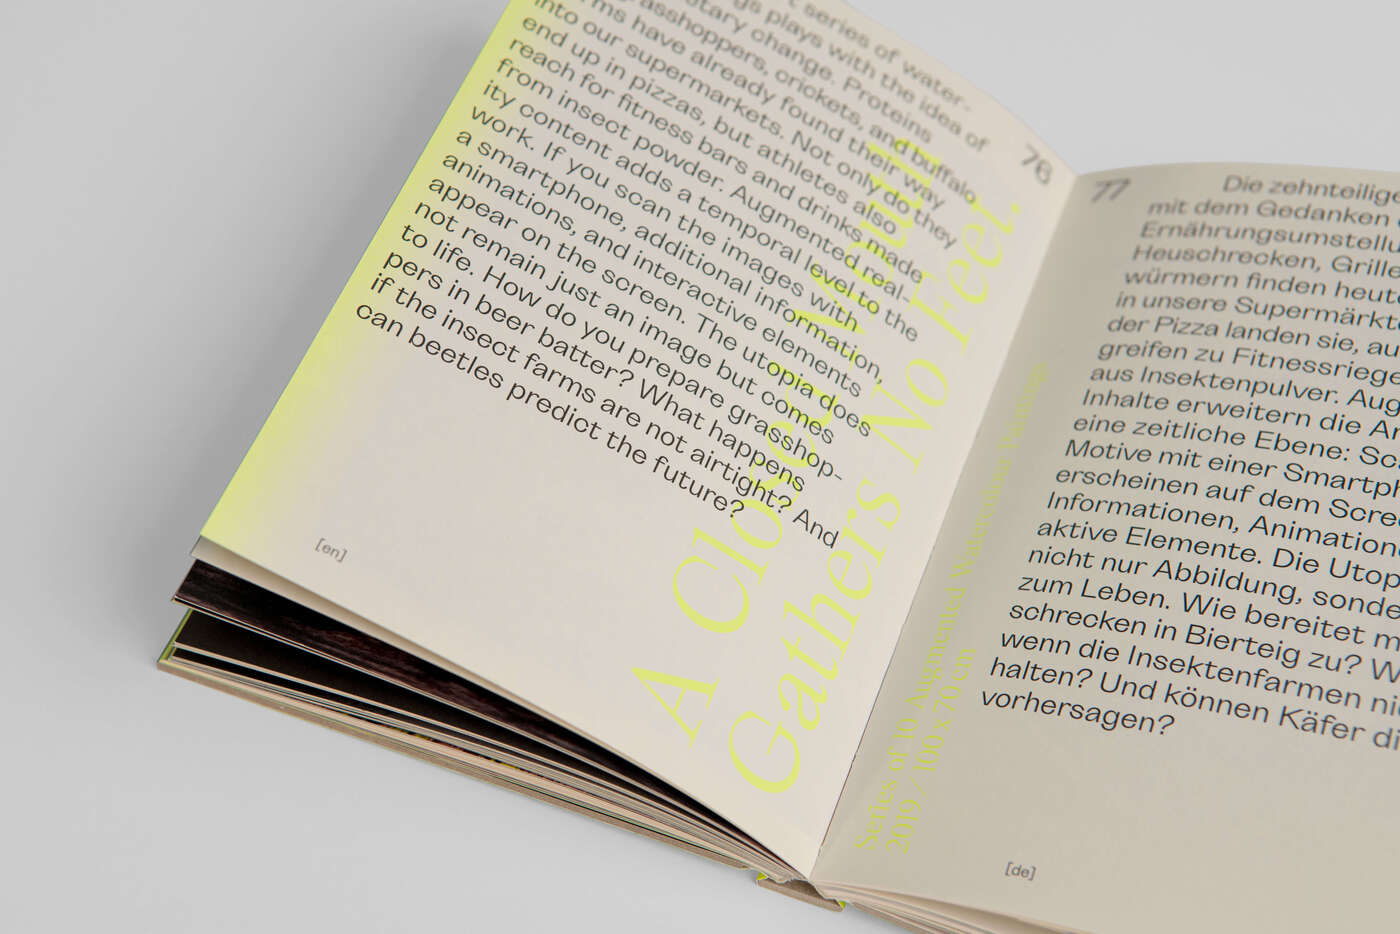 t series of water-
gs plays with the idea of
etary change. Proteins
asshoppers, crickets, and buffalo
ms have already found their way
into our supermarkets. Not only do they
end up in pizzas, but athletes also
reach for fitness bars and drinks made
from insect powder. Augmented real-
ity content adds a temporal level to the
work. If you scan the images with
a smartphone, additional information,
animations, and interactive elements
appear on the screen. The utopia does
not remain just an image but comes
to life. How do you prepare grasshop-
pers in beer batter? What happens
if the insect farms are not airtight? And
can beetles predict the future?
[en]
76
A Closed Mouth
Gathers No Feet.
77
Series of 10 Augmented Watercolour Paintings
2019 / 100 x 70 cm
Die zehnteilige
mit dem Gedanken
Ernährungsumstellu
Heuschrecken, Grille
würmern finden heut
in unsere Supermärkt
der Pizza landen sie, au
greifen zu Fitnessriege
aus Insektenpulver. Aug
Inhalte erweitern die Ar
eine zeitliche Ebene: Sc
Motive mit einer Smartph
erscheinen auf dem Scre
Informationen, Animation
aktive Elemente. Die Utop
nicht nur Abbildung, sonde
zum Leben. Wie bereitet m
schrecken in Bierteig zu? W
wenn die Insektenfarmen ni
halten? Und können Käfer di
vorhersagen?
[de]